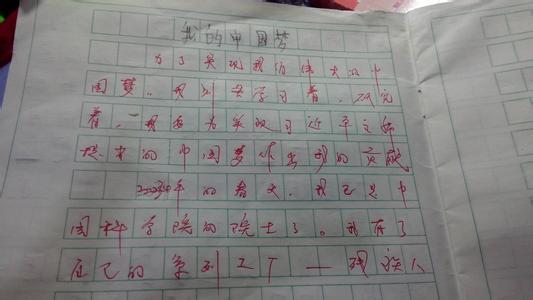 我的中国梦
为了实现我们伟大的中
国梦。我刻苦学习着,研究
着,我要为实现习近平主席
提出的中国梦作出我的贡献
年的春天,我已是中
国科学院的院士了。我有了
自己的系列工厂——机器人